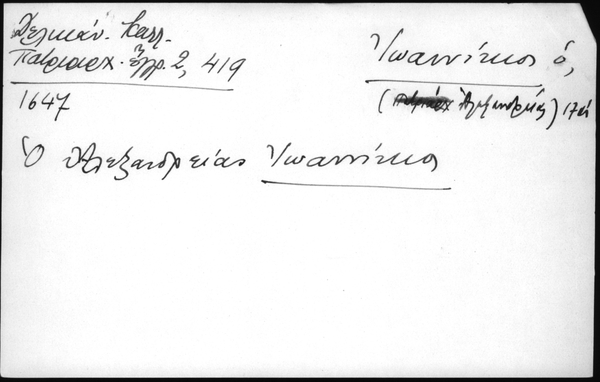 Δελικάν. Καλλ.
Πατριαρχ. έγγρ. 2, 419
1647
Ἰωαννίκιος ὁ,
(Ἀλεξανδρείας) 17ος
Ὁ Ἀλεξανδρείας Ἰωαννίκιος